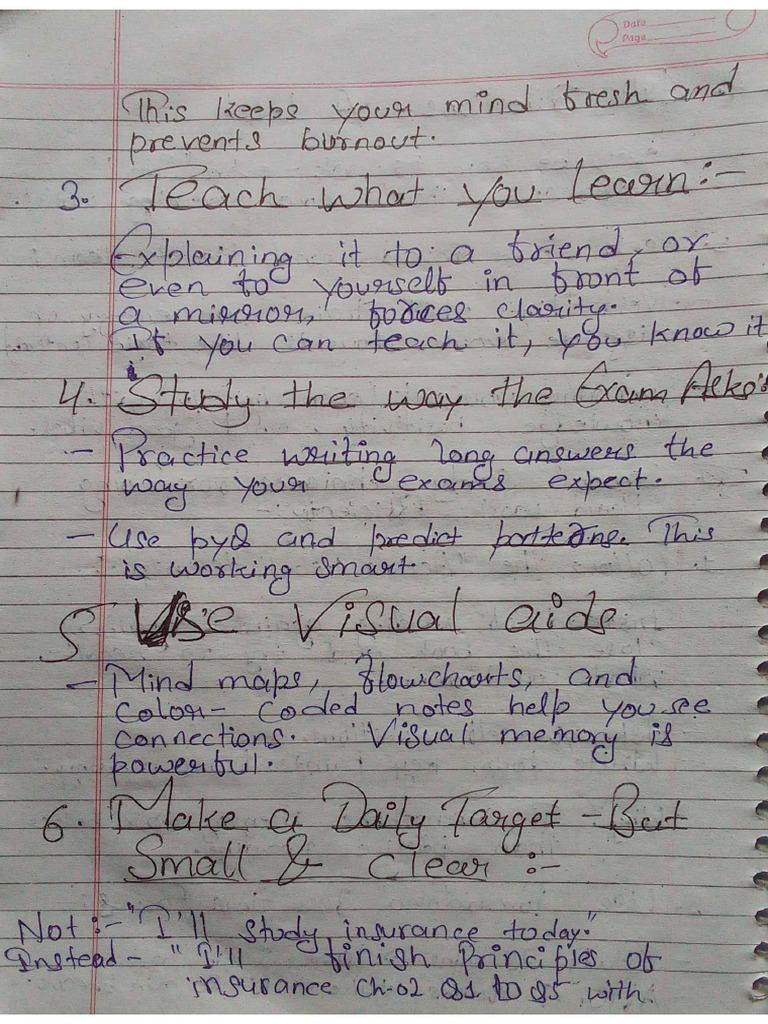 Date
Page
This keeps your mind fresh and
prevents burnout.
3. Teach what you learn:-
Explaining it to a friend, or
even to yourself in front of
a mirror, forces clarity.
If you can teach it, you know it
4. Study the way the Exam Asks:
- Practice writing long answers the
way your exams expect.
- Use pyQ and predict patterns. This
is working smart.
5 Use Visual aids
- Mind maps, flowcharts, and
color- coded notes help you see
connections. Visual memory is
powerful.
6. Make a Daily Target - But
Small & Clear :-
Not :- "I'll study insurance today."
Instead - "I'll finish Principles of
insurance Ch-02 Q1 to Q5 with.